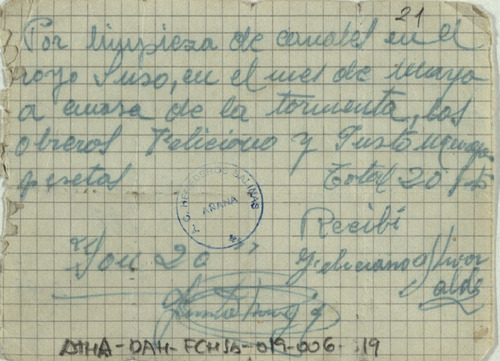 21
Por limpieza de canales en el
royo Suso, en el mes de Mayo
a causa de la tormenta, los
obreros Feliciano y Justo
pesetas Total 20 Pts
HEREDEROS SALINAS
AÑANA
Recibí
Son 20
Feliciano
ATHA-DAH-FCHSA-019-006-19